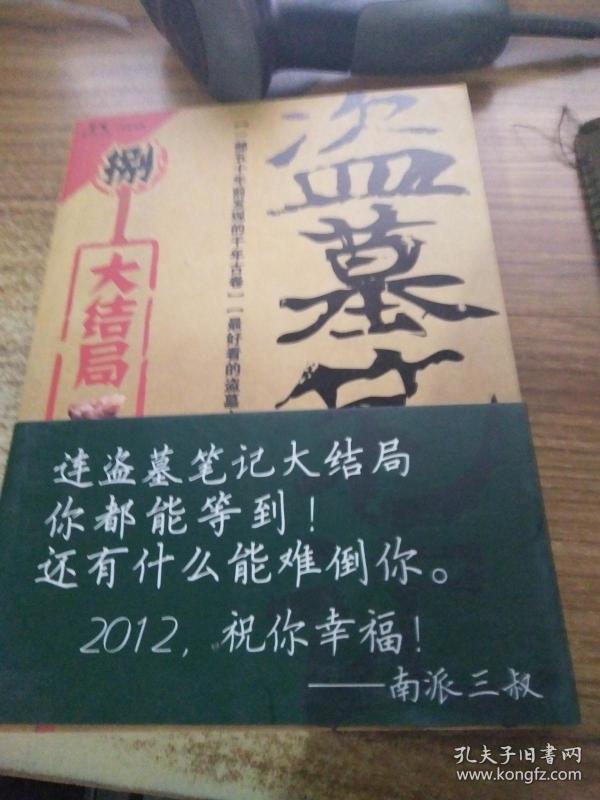 盗墓笔
捌
大结局
【一部五十年前发现的千年古卷】【最好看的盗墓
连盗墓笔记大结局
你都能等到！
还有什么能难倒你。
2012，祝你幸福！
——南派三叔
孔夫子旧书网
www.kongfz.com